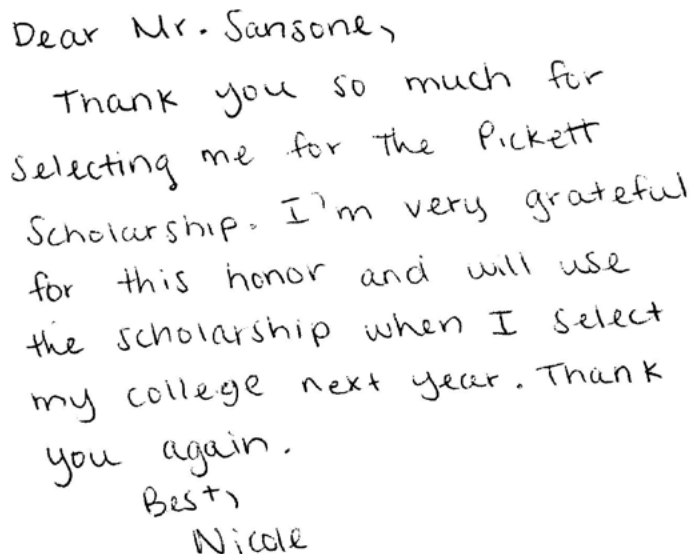 Dear Mr. Sansone,
Thank you so much for
selecting me for the Pickett
Scholarship. I'm very grateful
for this honor and will use
the scholarship when I select
my college next year. Thank
you again.
Best,
Nicole